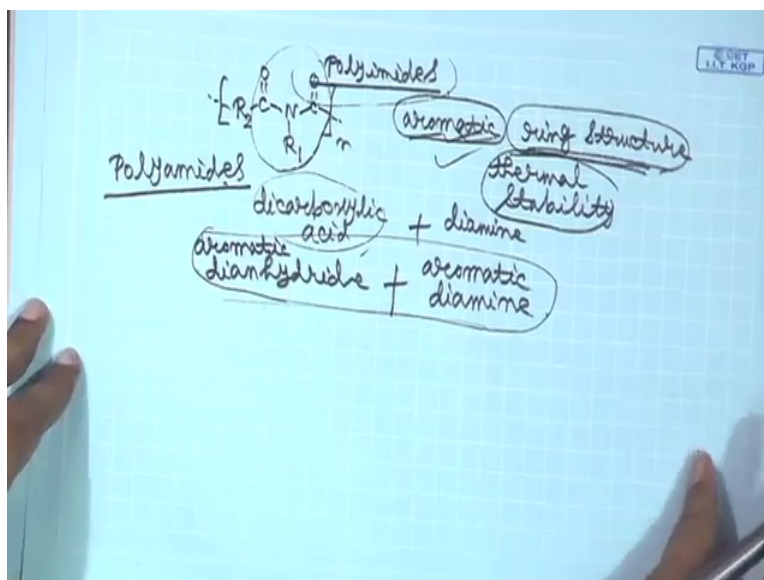 Polyimides
O O
[ R2-C-N-C ]n
R1
aromatic ring structure
thermal stability
Polyamides
dicarboxylic acid + diamine
aromatic dianhydride + aromatic diamine
© CET
I.I.T. KGP